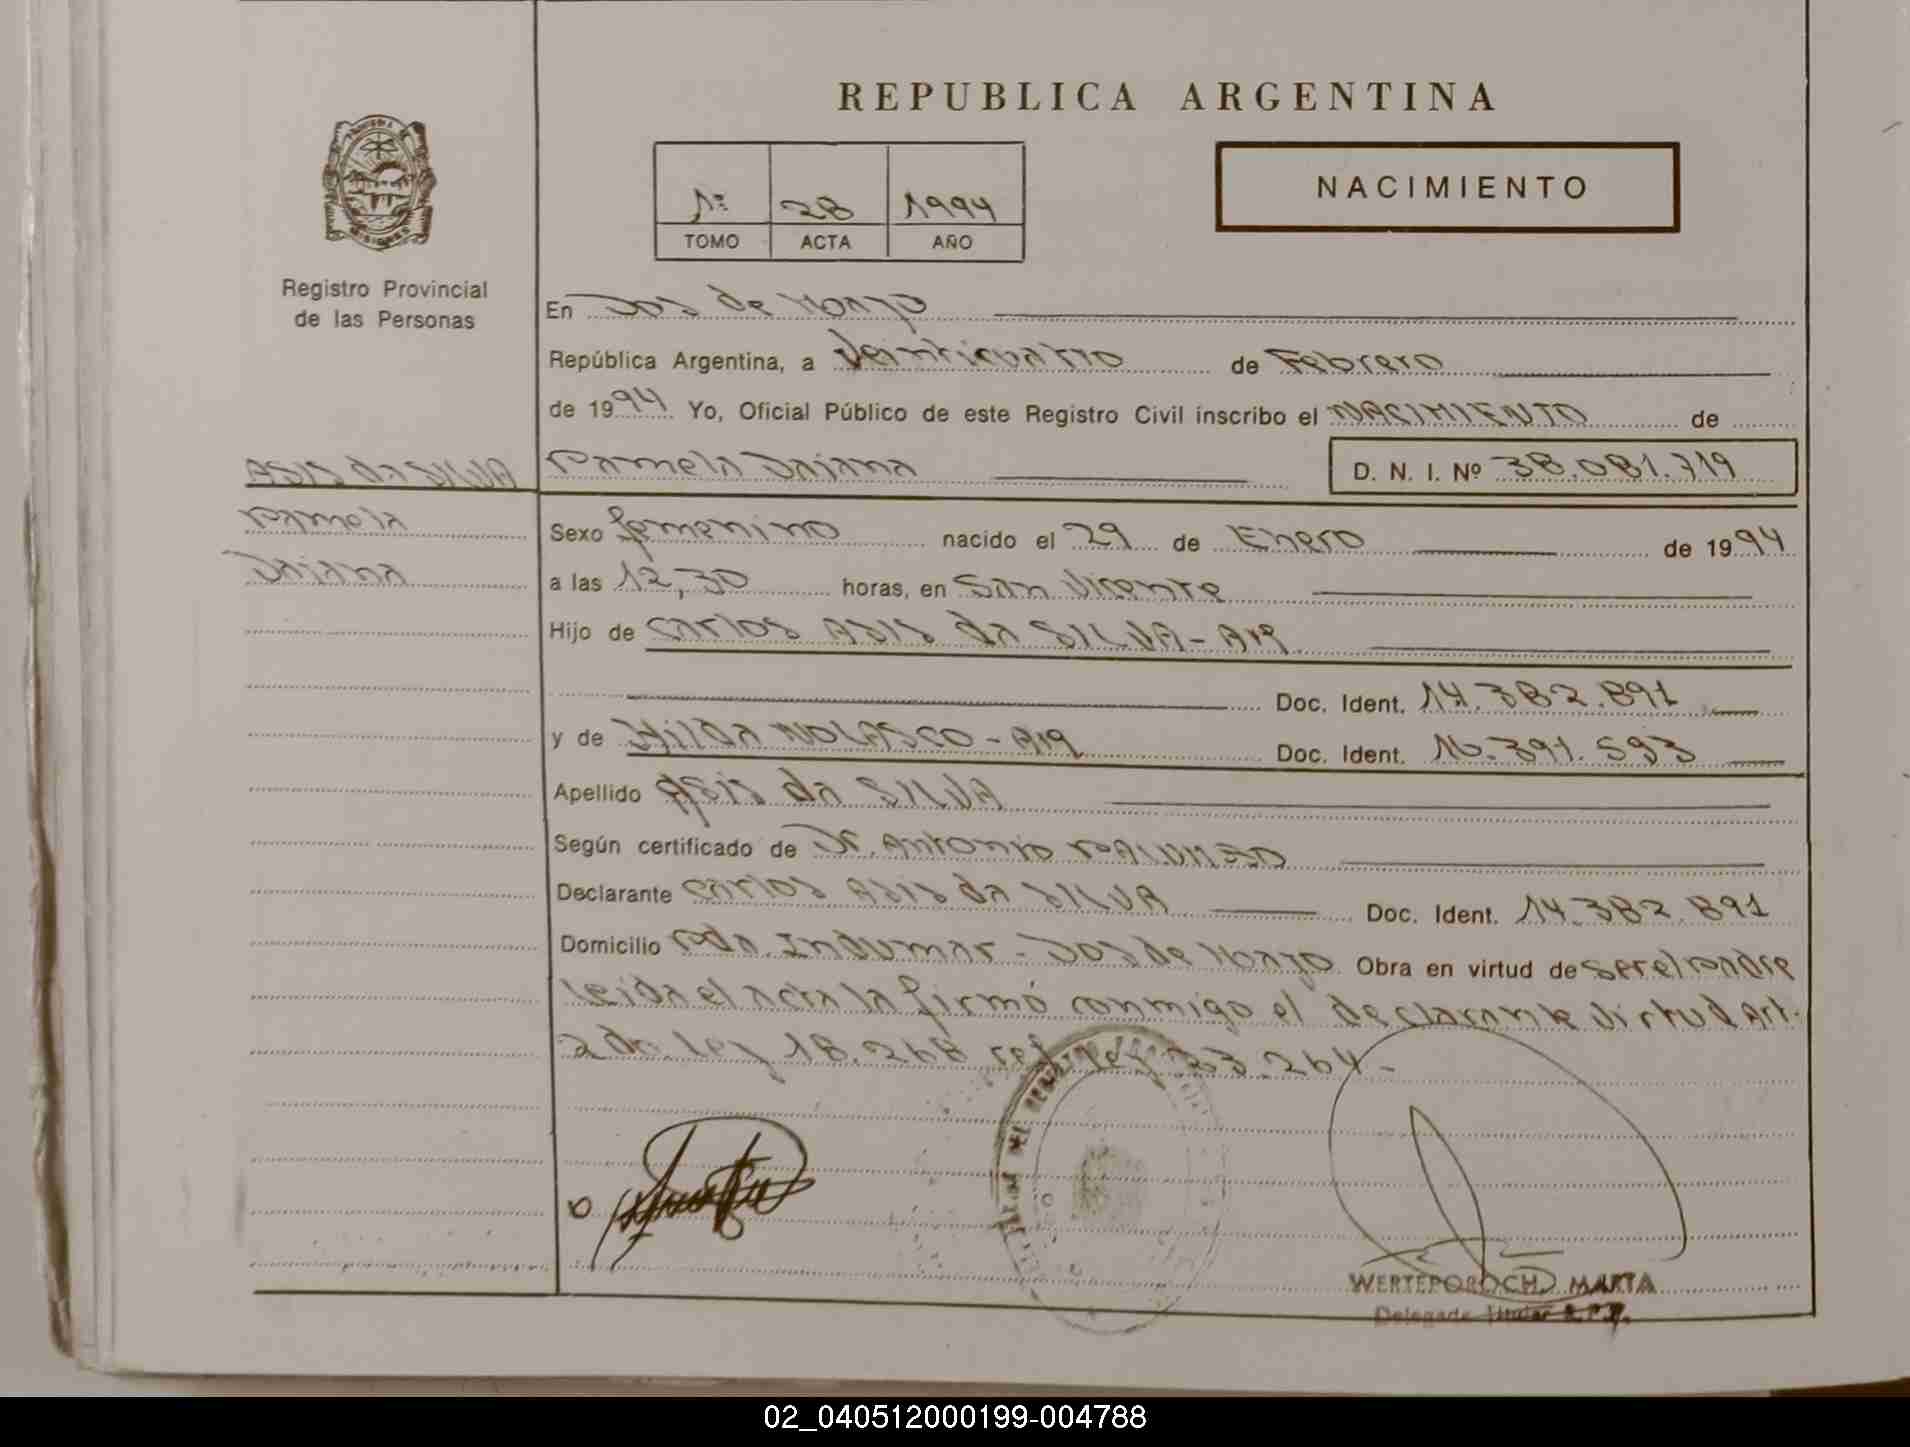 REPUBLICA ARGENTINA
NACIMIENTO
1º 28 1994
TOMO ACTA AÑO
Registro Provincial
de las Personas
En Dos de Mayo
República Argentina, a Veinticuatro de Febrero
de 1994 Yo, Oficial Público de este Registro Civil inscribo el NACIMIENTO de
Pamela Daiana D. N. I. Nº 38.081.719
ASIS da SILVA
Pamela
Daiana
Sexo femenino nacido el 29 de Enero de 1994
a las 12,30 horas, en San Vicente
Hijo de Carlos ASIS da SILVA - Arg
Doc. Ident. 14.382.891
y de Hilda NOLASCO - Arg Doc. Ident. 16.391.593
Apellido Asis da SILVA
Según certificado de Dr. Antonio
Declarante Carlos ASIS da SILVA Doc. Ident. 14.382.891
Domicilio Indumar - Dos de Mayo Obra en virtud de ser el Padre
Leida el acta la firmó conmigo el declarante Virtud Art.
2do. Ley 18.268 Ley 23.264 -
WERTEPOROCH, MARTA
Delegada Titular R.P.P.
02_040512000199-004788